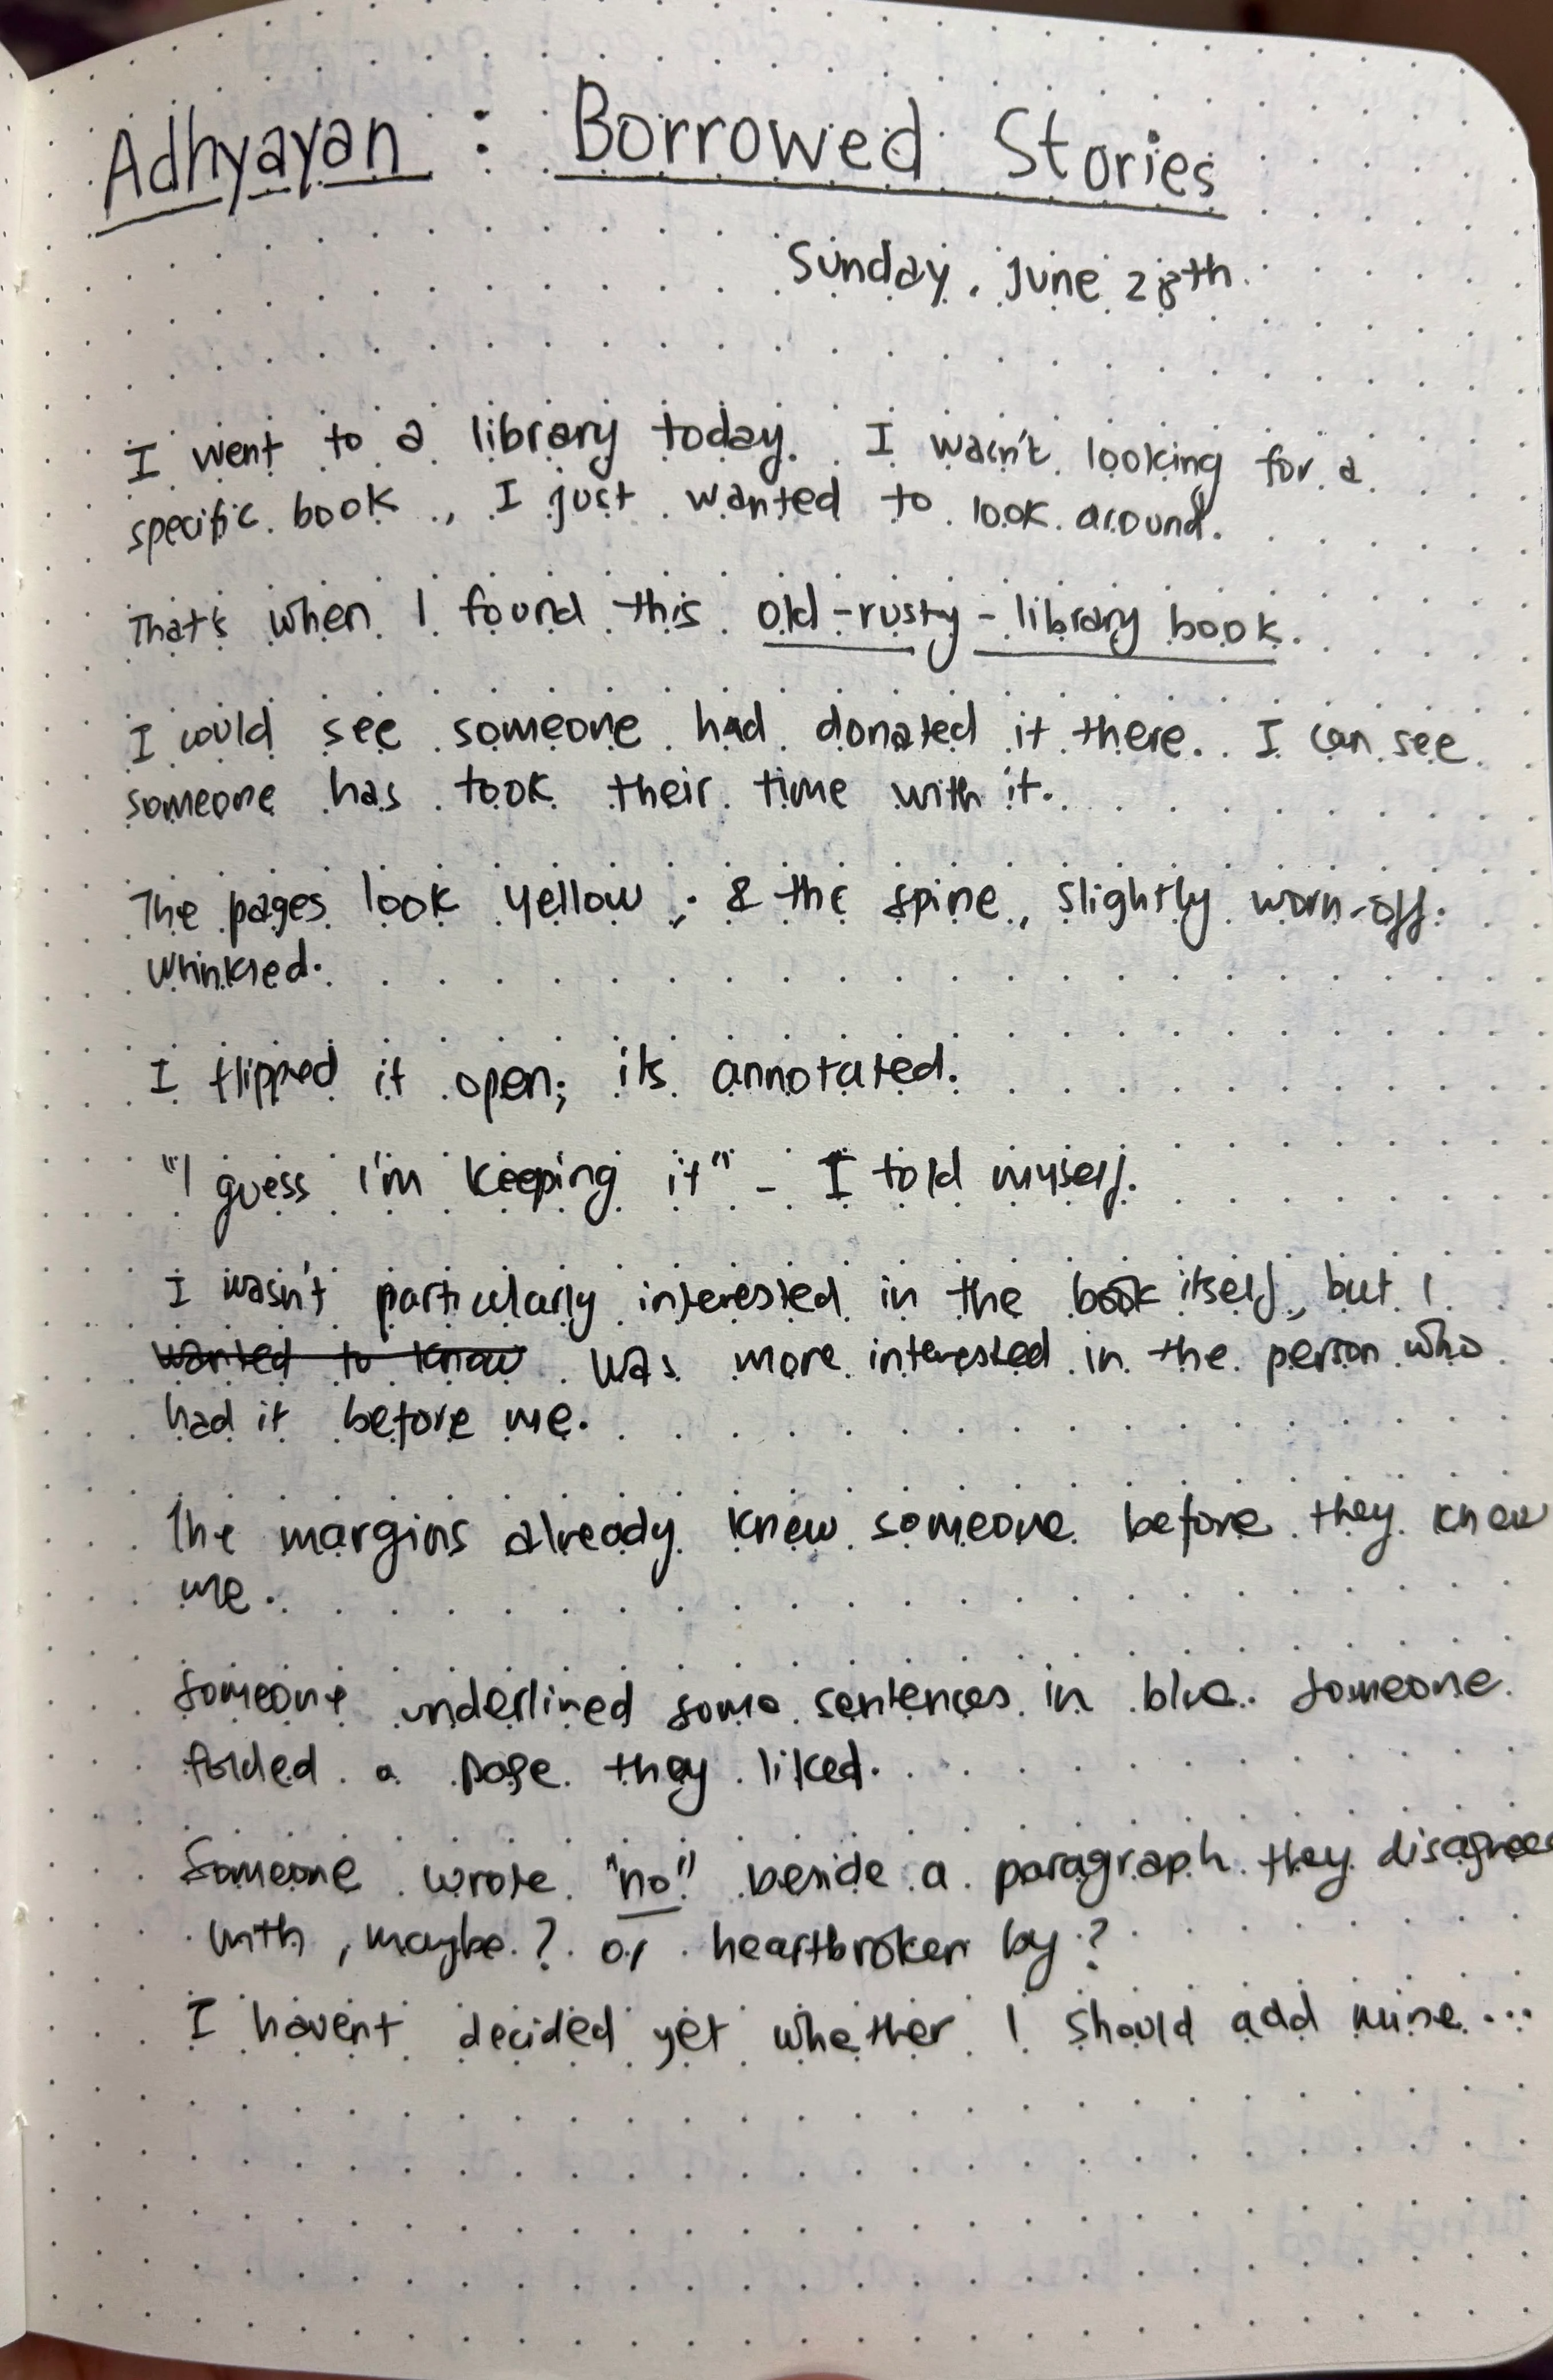 Adhyayan : Borrowed Stories
Sunday, June 28th
I went to a library today. I wasn't looking for a
specific book, I just wanted to look around.
That's when I found this old-rusty-library book.
I could see someone had donated it there. I can see
someone has took their time with it.
The pages look yellow; & the spine, slightly worn-off.
wrinkled.
I flipped it open; its annotated.
"I guess I'm keeping it" - I told myself.
I wasn't particularly interested in the book itself, but I
wanted to know was more interested in the person who
had it before me.
The margins already knew someone before they knew
me.
Someone underlined some sentences in blue. Someone
folded a page they liked.
Someone wrote "no" beside a paragraph they disagree
with, maybe? or heartbroken by?
I havent decided yet whether I should add mine...